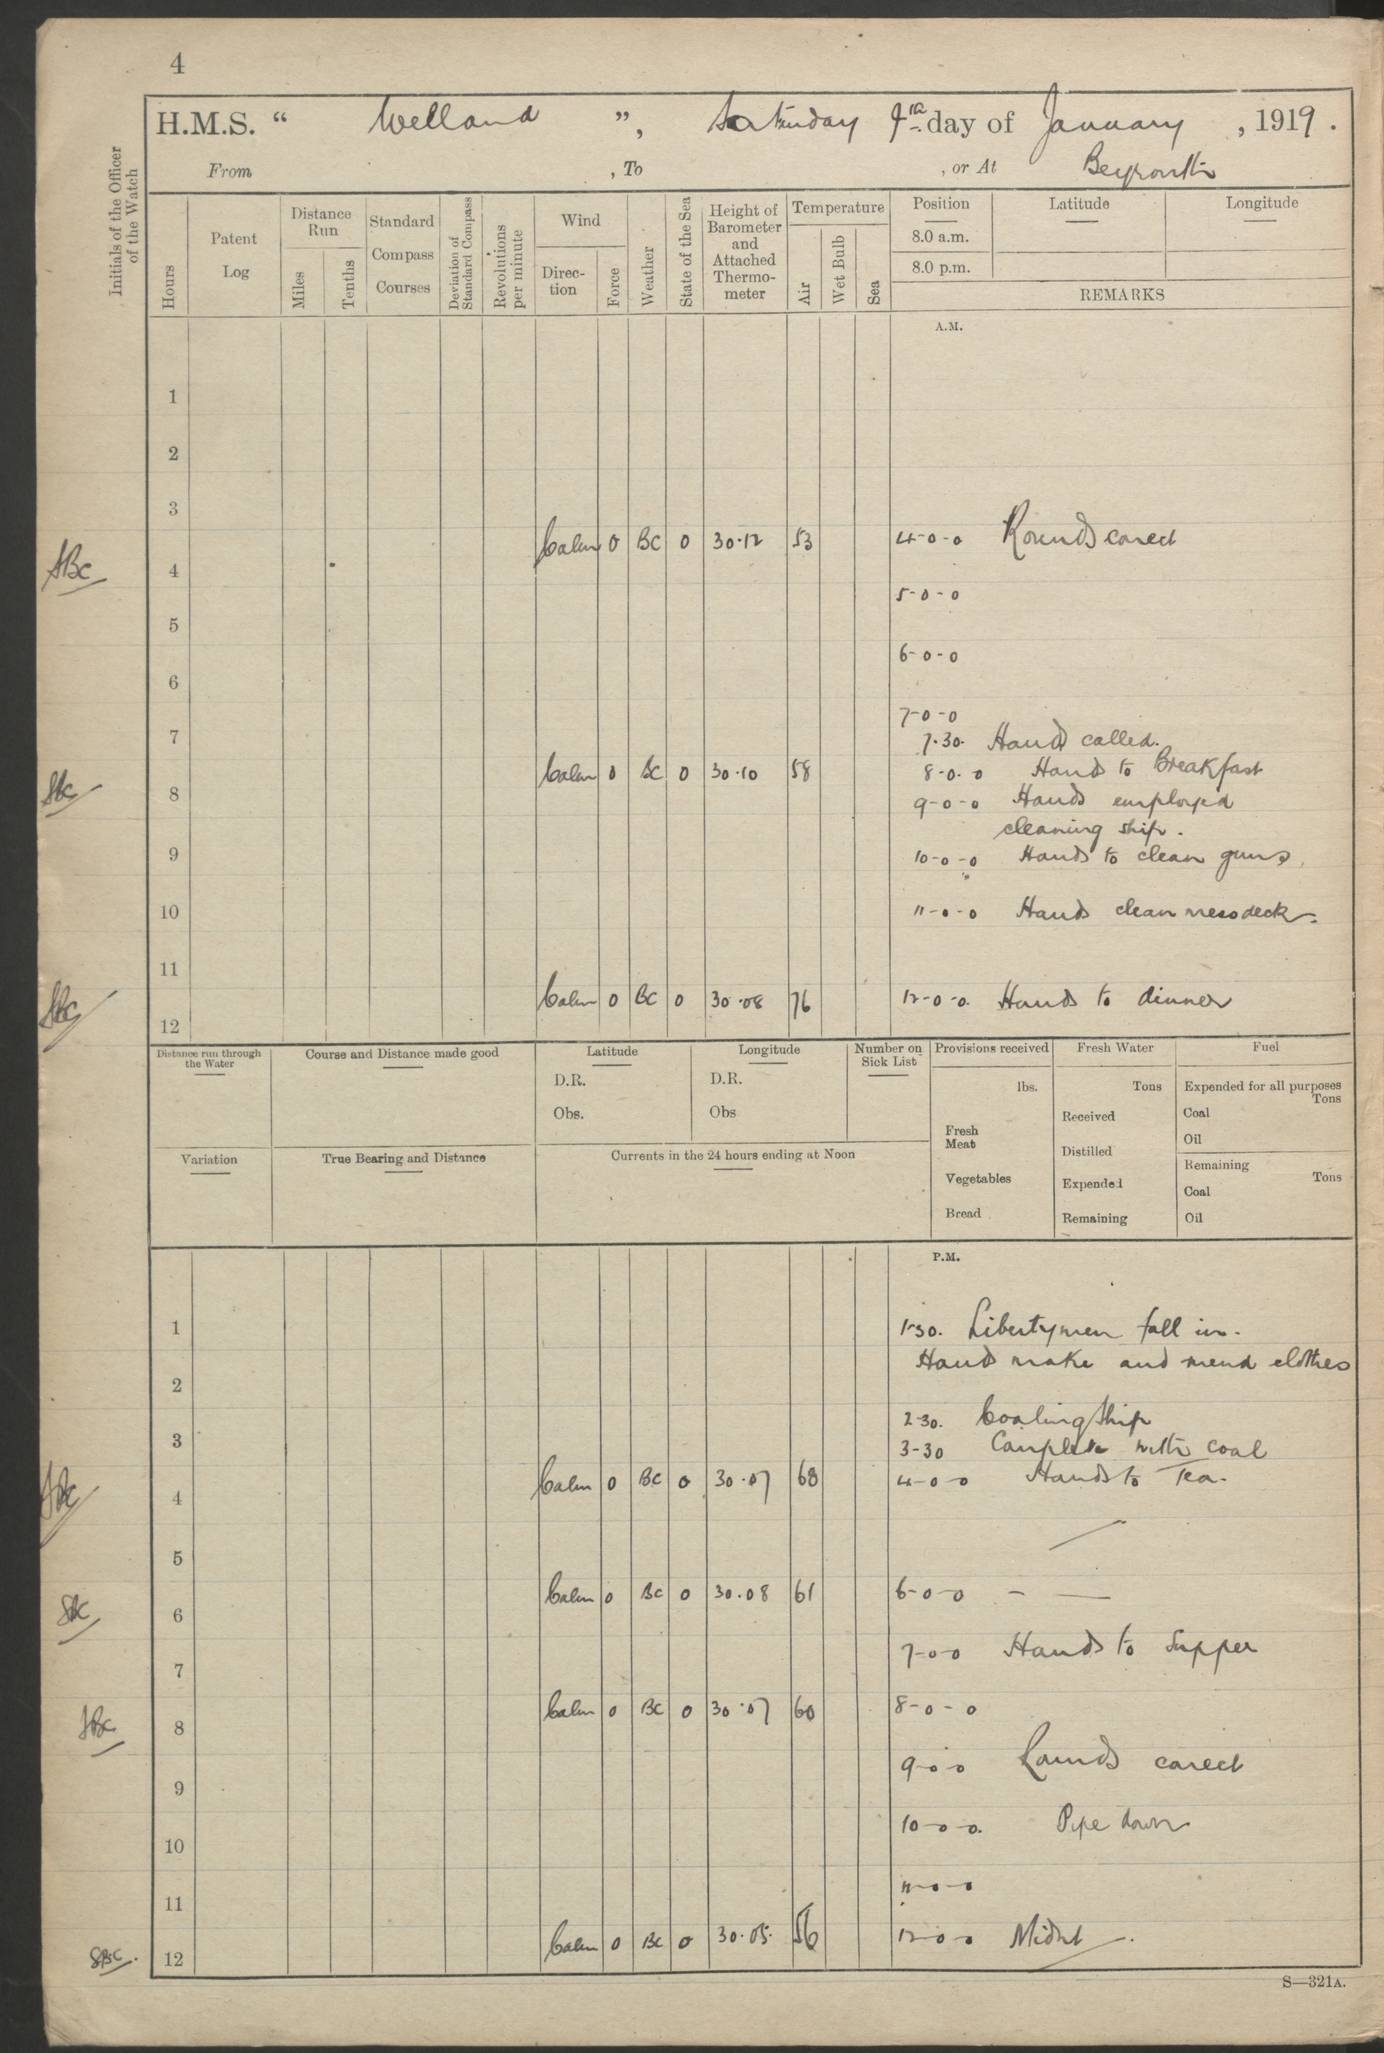 4
H.M.S. “ Welland ”, Saturday day of January , 1919 .
From , To , or At Beyrouth
Initials of the Officer of the Watch
Hours
Patent Log
Distance Run
Miles
Tenths
Standard Compass Courses
Deviation of Standard Compass
Revolutions per minute
Wind
Direc-tion
Force
Weather
State of the Sea
Height of Barometer and Attached Thermo-meter
Temperature
Air
Wet Bulb
Sea
Position Latitude Longitude
8.0 a.m.
8.0 p.m.
REMARKS
A.M.
1
2
3
Calm 0 BC 0 30.12 53 4-0-0 Rounds corect
SBC 4
5-0-0
5
6-0-0
6
7-0-0
7
7.30. Hands called.
Calm 0 BC 0 30.10 58 8-0-0 Hands to Breakfast
SBC 8
9-0-0 Hands employed
cleaning ship.
9
10-0-0 Hands to clean guns.
10
11-0-0 Hands clean messdeck.
11
Calm 0 BC 0 30.08 76 12-0-0. Hands to dinner
SBC 12
Distance run through the Water
Course and Distance made good
Latitude
D.R.
Obs.
Longitude
D.R.
Obs
Number on Sick List
Provisions received
lbs.
Fresh Meat
Vegetables
Bread
Fresh Water
Tons
Received
Distilled
Expended
Remaining
Fuel
Expended for all purposes
Tons
Coal
Oil
Remaining
Tons
Coal
Oil
Variation
True Bearing and Distance
Currents in the 24 hours ending at Noon
P.M.
1
1-30. Libertymen fall in.
Hands make and mend clothes
2
2-30. Coaling Ship
3
3-30 Complete with coal
Calm 0 BC 0 30.07 68 4-0-0 Hands to Tea.
SBC 4
5
Calm 0 BC 0 30.08 61 6-0-0 - —
SBC 6
7-0-0 Hands to Supper
7
Calm 0 BC 0 30.07 60 8-0-0
SBC 8
9-0-0 Rounds corect
9
10-0-0. Pipe down
10
11-0-0
11
Calm 0 BC 0 30.05. 56 12-0-0 Midnt.
SBC. 12
S—321A.